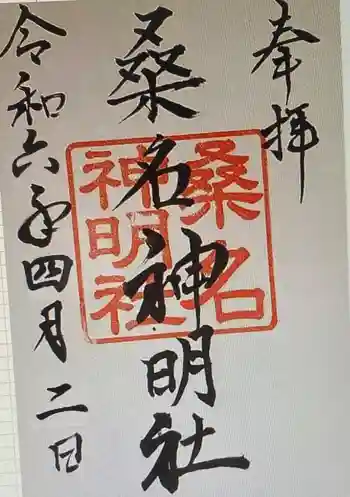 奉拝
桑名神明社
桑名
神明社
令和六年四月二日